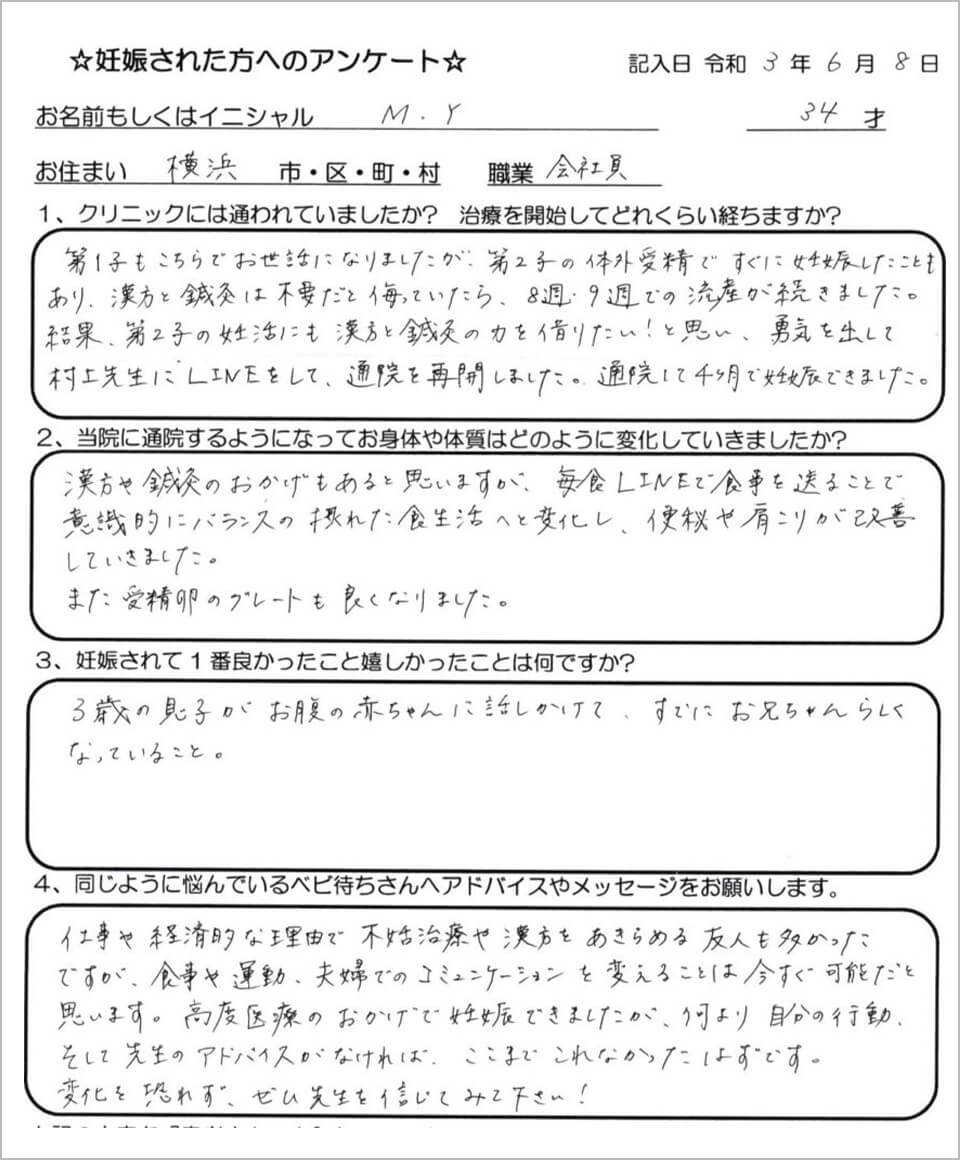 ☆妊娠された方へのアンケート☆ 記入日 令和 3 年 6 月 8 日
お名前もしくはイニシャル M.Y 34 才
お住まい 横浜 市・区・町・村 職業 会社員
1、クリニックには通われていましたか? 治療を開始してどれくらい経ちますか?
第1子もこちらでお世話になりましたが、第2子の体外受精ですぐに妊娠したことも
あり、漢方と鍼灸は不要だと侮っていたら、8週・9週での流産が続きました。
結果、第2子の妊活にも漢方と鍼灸の力を借りたい!と思い、勇気を出して
村上先生にLINEをして、通院を再開しました。通院して4ヶ月で妊娠できました。
2、当院に通院するようになってお身体や体質はどのように変化していきましたか?
漢方や鍼灸のおかげもあると思いますが、毎食LINEで食事を送ることで
意識的にバランスの摂れた食生活へと変化し、便秘や肩こりが改善
していきました。
また受精卵のグレートも良くなりました。
3、妊娠されて1番良かったこと嬉しかったことは何ですか?
3歳の息子がお腹の赤ちゃんに話しかけて、すでにお兄ちゃんらしく
なっていること。
4、同じように悩んでいるベビ待ちさんへアドバイスやメッセージをお願いします。
仕事や経済的な理由で不妊治療や漢方をあきらめる友人も多かった
ですが、食事や運動、夫婦でのコミュニケーションを変えることは今すぐ可能だと
思います。高度医療のおかげで妊娠できましたが、何より自分の行動、
そして先生のアドバイスがなければ、ここまでこれなかったはずです。
変化を恐れず、ぜひ先生を信じてみて下さい!